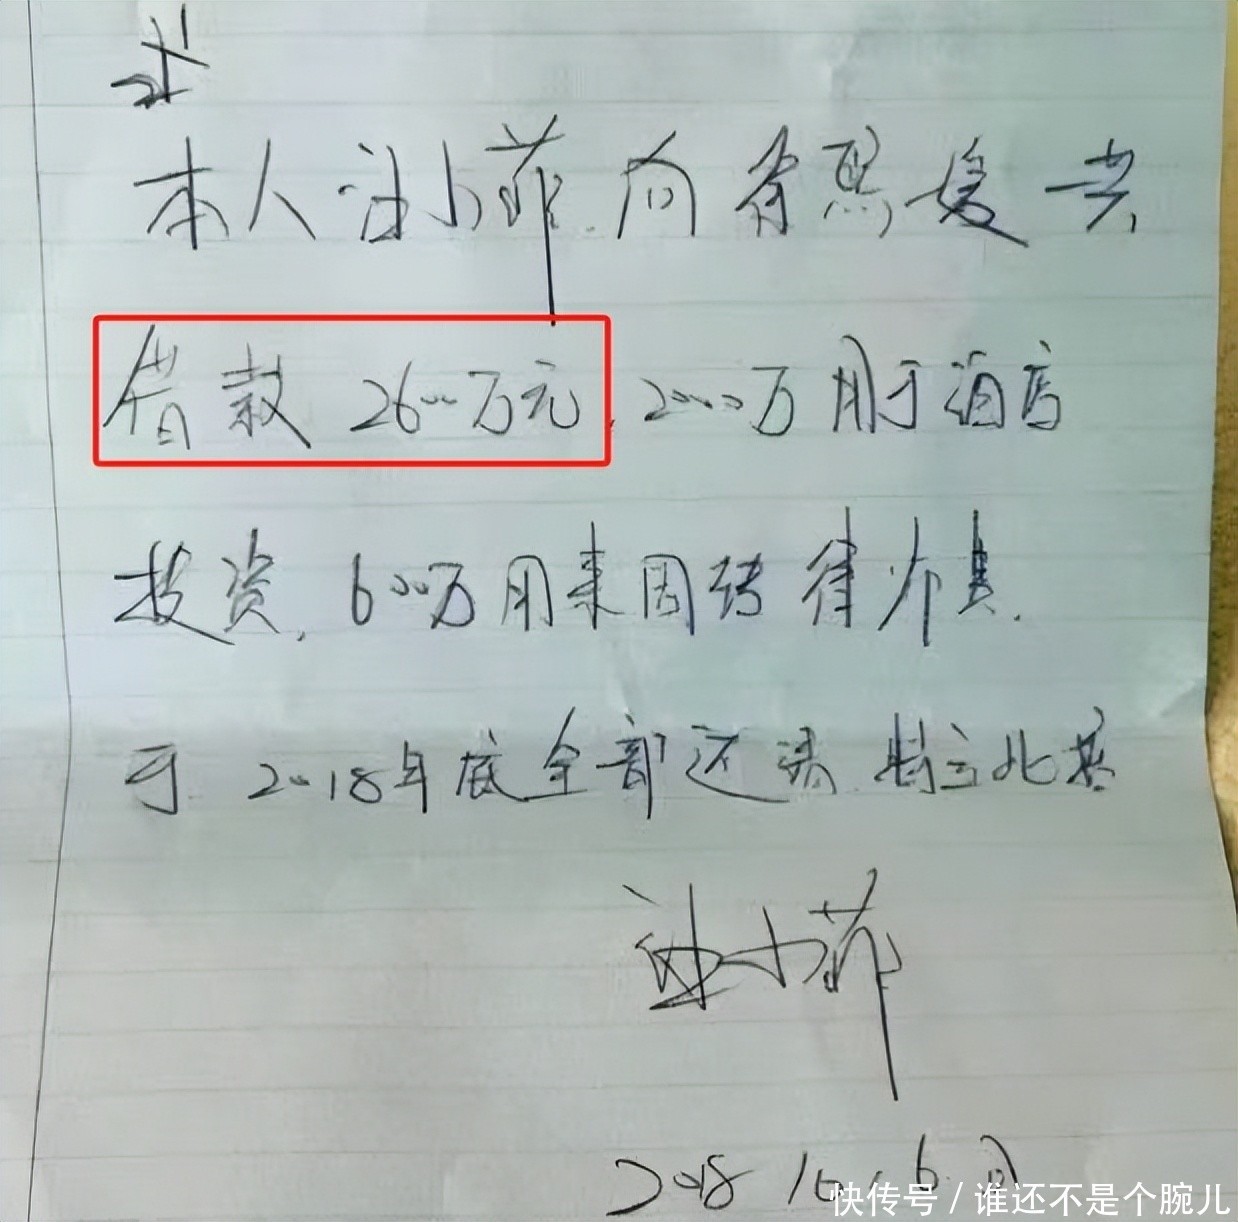 本人汪小菲向徐熙媛共
借款2600万元,2000万用于酒店
投资,600万用来周转
于2018年底全部还清.特立此
汪小菲
2018 10
快传号 / 谁还不是个腕儿